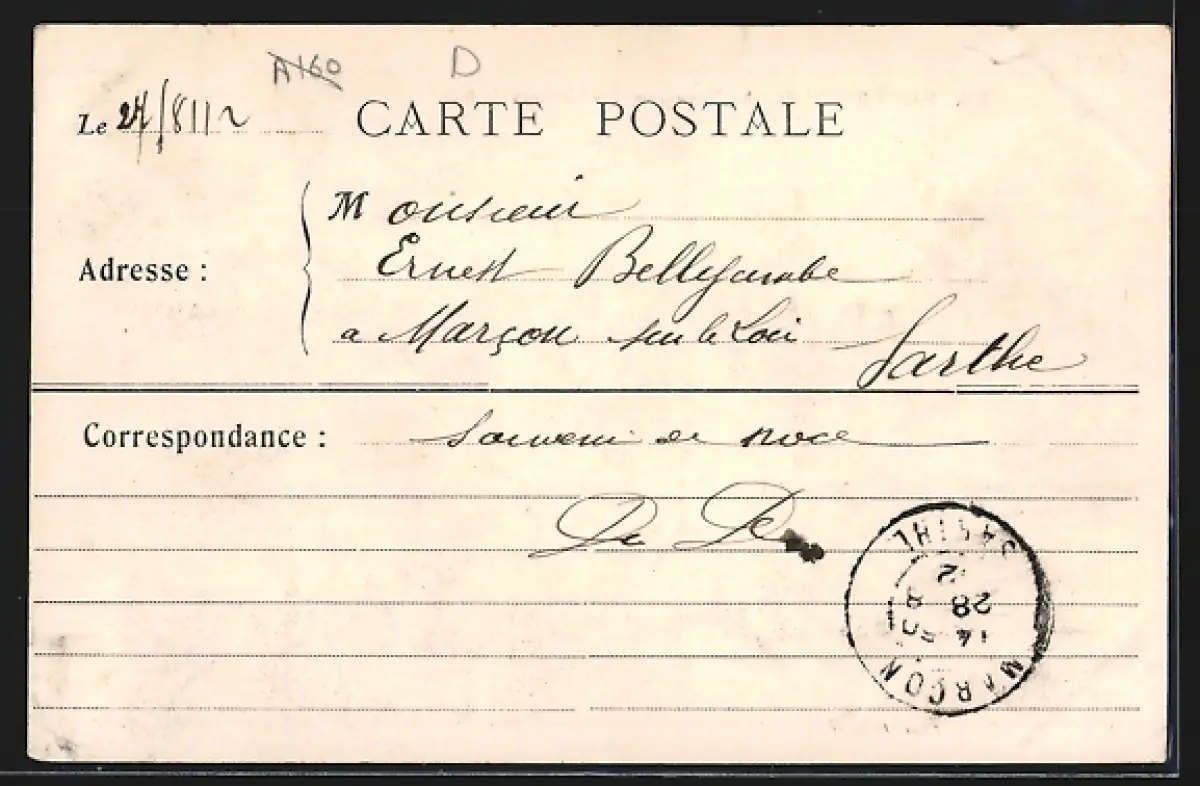 A160 D
Le 27/8/12 CARTE POSTALE
Monsieur
Adresse : Ernest Bellejambe
a Marçon sur le Loir Sarthe
Correspondance : Souvenir de noce
MARÇON
14 50
28 8
12
SARTHE